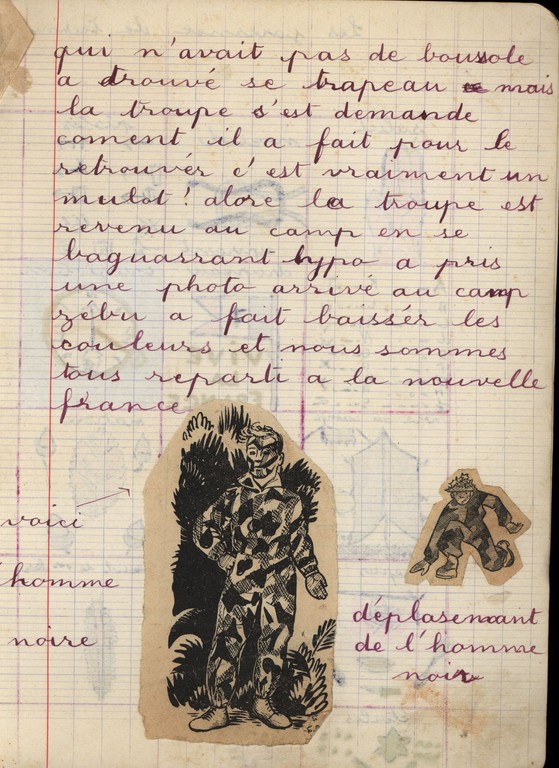 qui n'avait pas de boussole
a trouvé se trapeau mais
la troupe s'est demande
coment il a fait pour le
retrouvér c'est vraiment un
mulot ! alore la troupe est
revenu au camp en se
baguarrant hypo a pris
une photo arrivé au camp
zébu a fait baissér les
couleurs et nous sommes
tous reparti a la nouvelle
france
voici
l'homme
noire
déplasemant
de l'homme
noir